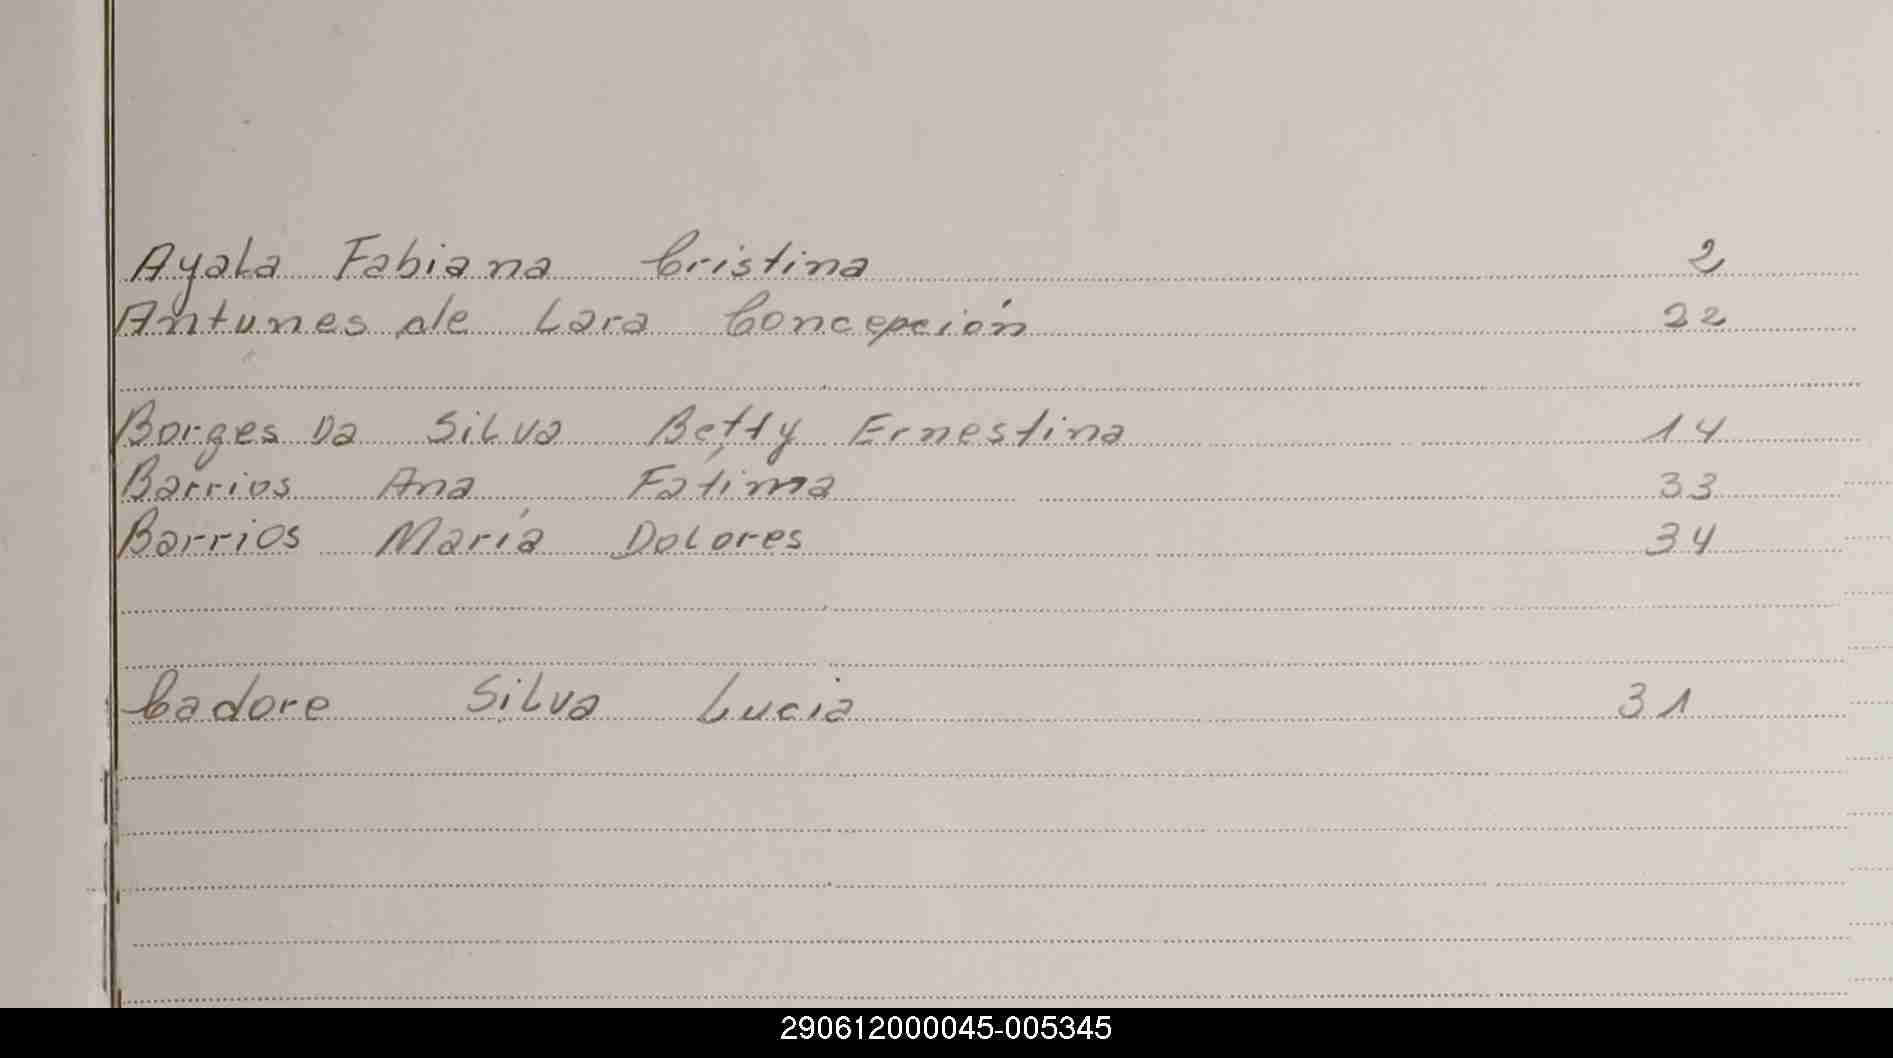 Ayala Fabiana Cristina 2
Antunes de Lara Concepción 22
Borges Da Silva Betty Ernestina 14
Barrios Ana Fátima 33
Barrios María Dolores 34
Cadore Silva Lucia 31
290612000045-005345